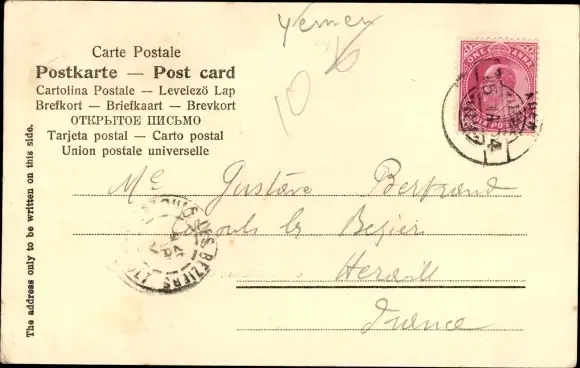 Yemen
10
Carte Postale
Postkarte — Post card
Cartolina Postale — Levelező Lap
Brefkort — Briefkaart — Brevkort
ОТКРЫТОЕ ПИСЬМО
Tarjeta postal — Carto postal
Union postale universelle
The address only to be written on this side.
ONE ANNA
Gustave Bertrand
Bezier
France
BEZIERS